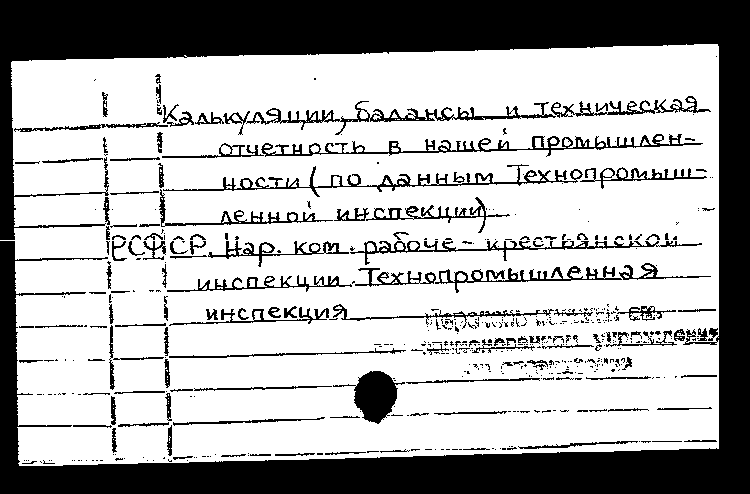 Калькуляции, балансы и техническая
отчетность в нашей промышлен-
ности (по данным Технопромыш-
ленной инспекции)
РСФСР. Нар. ком. рабоче-крестьянской
инспекции. Технопромышленная
инспекция
Перечень см.
учреждения